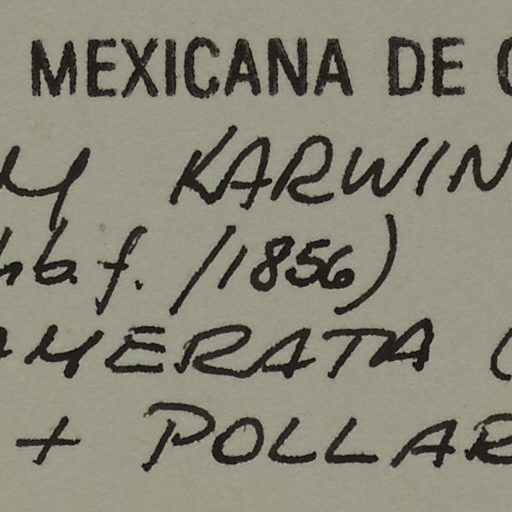 MEXICANA DE
M KARWIN
hb. f. /1856)
AMERATA (
+ POLLAR